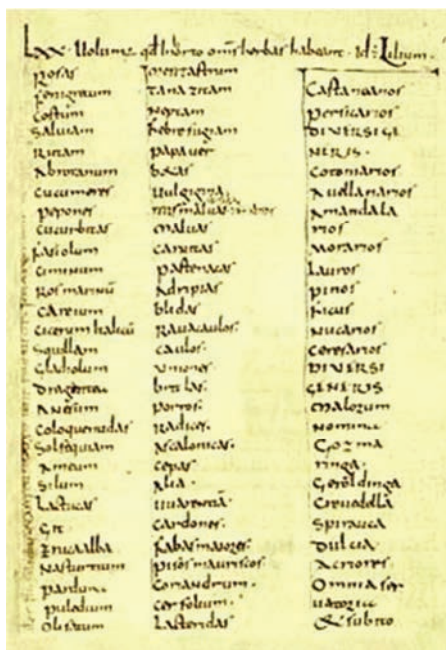 LXX. Volumus qd in horto oms herbas habeant. id: Lilium.
Rosas
fenigrecum
Costum
Saluiam
Rutam
Abrotanum
Cucumeres
pepones
Cucurbitas
fasiolum
Ciminum
Rosmarinū
Careium
Cicerum italicū
Squillam
Gladiolum
Dragantea
Anesum
Coloquentidas
Solsequiam
Ameum
Silum
Lactucas
Git
Erucaalba
Nasturtium
parduna
puledium
Olisatum
mentastrum
Tanazitam
Neptam
febrefugiam
papauer
betas
Uulgigina
malvas
Caruitas
Pastenacas
Adripias
blidas
Ravacaulos
Caulos
Uniones
britlas
porros
Radices
Ascalonicas
Cepas
Alia
Uuarentiā
Cardones
fabasmaiores
pisos mauriscos
Coriandrum
Cerfolium
Lacteridas
Castanearios
Persicarios
DIVERSIGE
NERIS
Cotoniarios
Auellanarios
Amandala
rios
Morarios
Lauros
pinos
ficus
Nucarios
Ceresarios
DIVERSI
GENERIS
Malorum
Nomina
Gozma
ringa
Geroldinga
Creuedella
Spirauca
Dulcia
Acriores
Omnia ser
uatoria
& subito